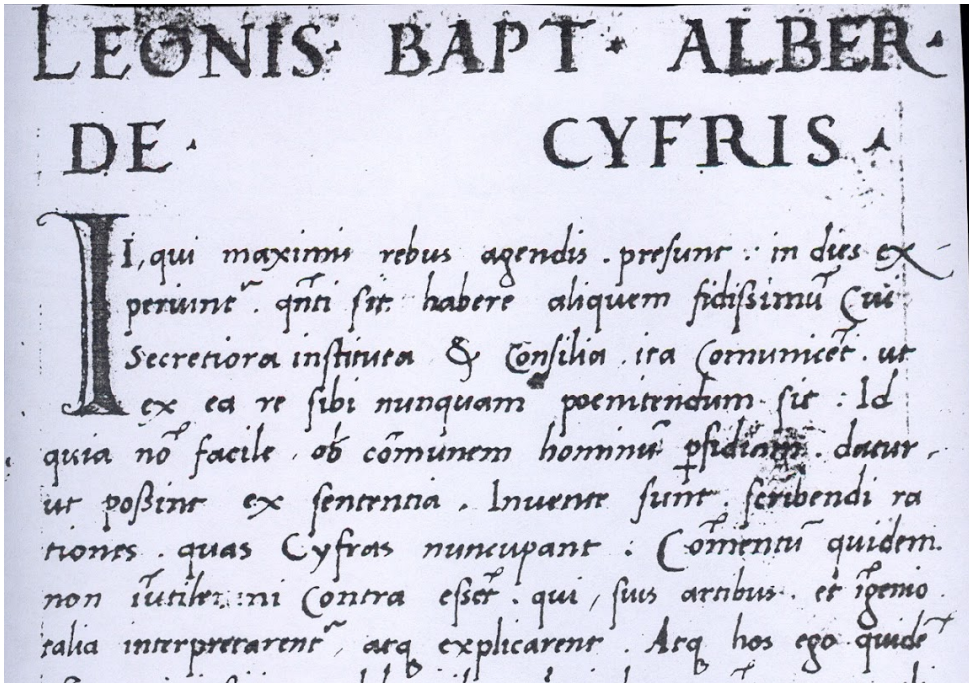 LEONIS· BAPT· ALBER·
DE· CYFRIS·
II, qui maximis rebus agendis . presunt : in dies ex-
periunt᷑ . qñti sit habere aliquem fidissimũ Cui
Secretiora instituta & Consilia . ita Comunicẽt . ut
ex ea re sibi nunquam poenitendum sit : Id
quia nõ facile . ob cõmunem hominũ ꝑfidiam . datur,
ut poßint ex sententia . Invente sunt . scribendi ra
tiones . quas Cyfras nuncupant : Cõmentũ quidem.
non ĩutile : ni Contra eßẽt . qui , suis artibus . et ĩgenio
talia interpretarent᷑ . atq explicarent . Atq hos ego quidẽ